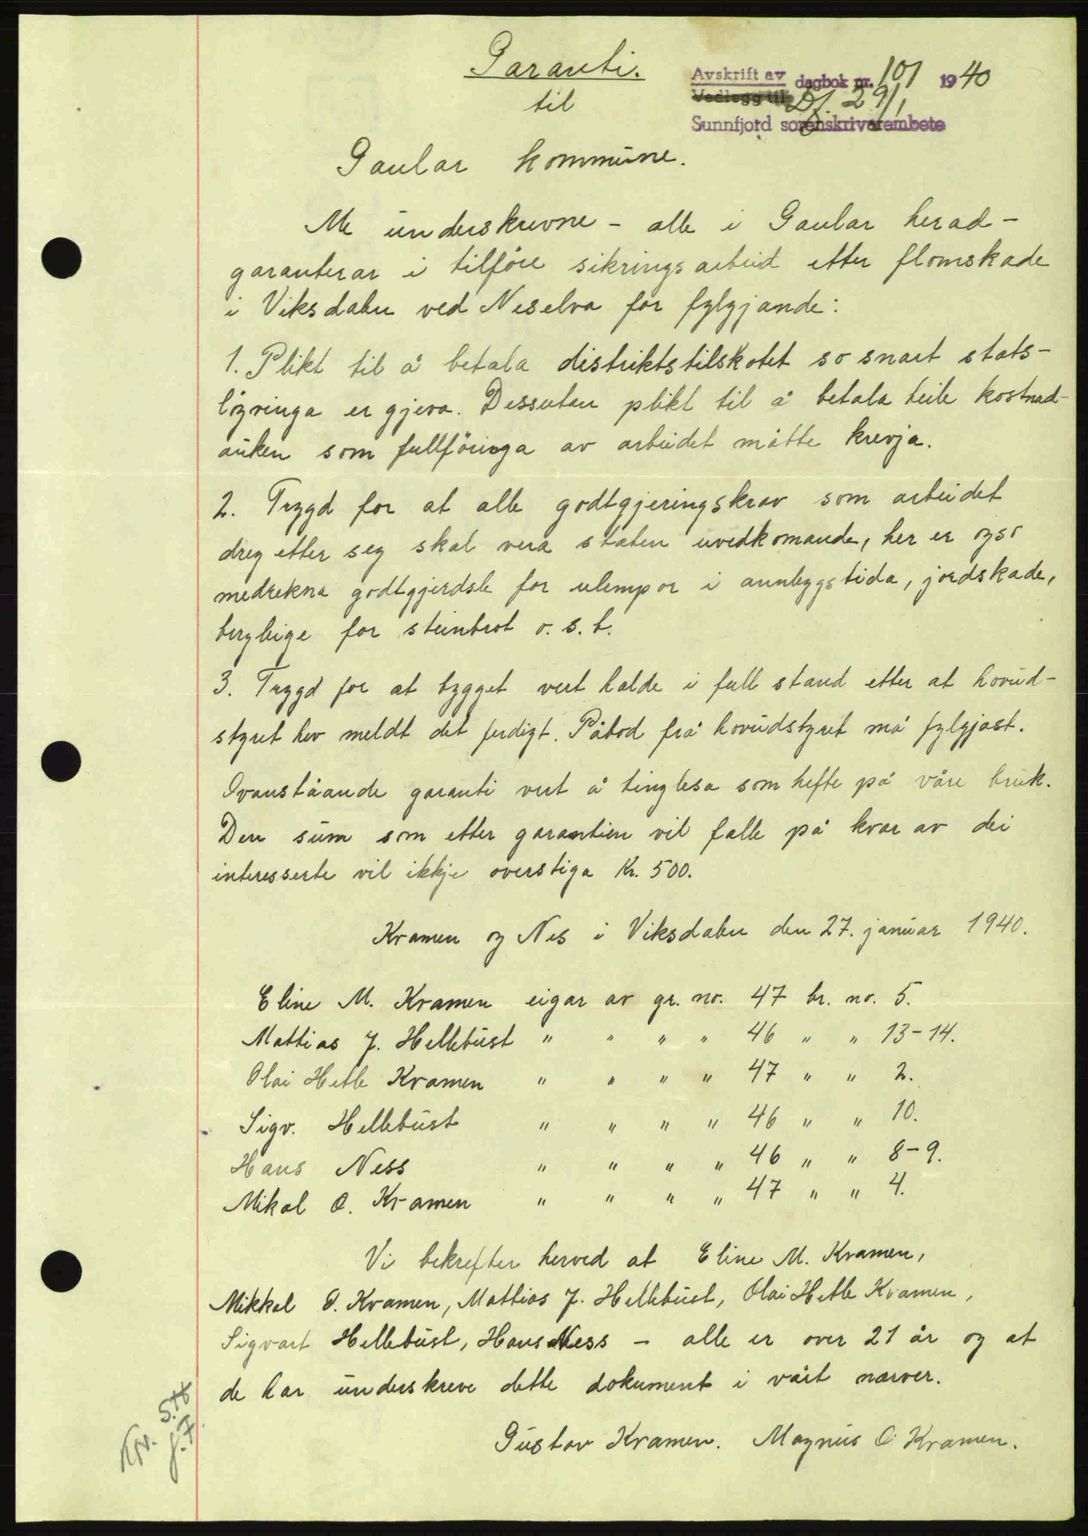 Garanti.
til
Avskrift av dagbok nr. 101 1940
Vedlegg til Df. 29/1,
Sunnfjord sorenskriverembete
Gaular kommune.
Me underskrevne - alle i Gaular herad -
garanterar i tilföre sikringsarbeid etter flomskade
i Viksdalen ved Neselva for fylgjande:
1. Plikt til å betala distriktstilskotet so snart stats-
löyvinga er gjeva. Dessutan plikt til å betala heile kostnad-
auken som fullföringa av arbeidet måtte krevja.
2. Trygd for at alle godtgjeringskrav som arbeidet
dreg etter seg skal vera staten uvedkomande, her er ogso
medrekna godtgjerdsle for ulempor i anleggstida, jordskade,
bergleige for steinbrot o. s. b.
3. Trygd for at bygget vert halde i full stand etter at hovud-
styret hev meldt det ferdigt. Påbod frå hovudstyret må fylgjast.
Ovanståande garanti vert å tinglesa som hefte på våre bruk.
Den sum som etter garantien vil falle på kvar av dei
interesserte vil ikkje overstiga Kr. 500.
Kramen og Nes i Viksdalen den 27. januar 1940.
Eline M. Kramen eigar av gr. no. 47 br. no. 5.
Mattias J. Hellebust " " " " 46 " " 13-14.
Olai Hetle Kramen " " " " 47 " " 2.
Sigv. Hellebust " " " " 46 " " 10.
Hans Ness " " " " 46 " " 8-9.
Mikal O. Kramen " " " " 47 " " 4.
Vi bekrefter herved at Eline M. Kramen,
Mikkal O. Kramen, Mattias J. Hellebust, Olai Hetle Kramen,
Sigvart Hellebust, Hans Ness - alle er over 21 år og at
de har underskreve dette dokument i vårt nærver.
Gustav Kramen. Magnus O Kramen.